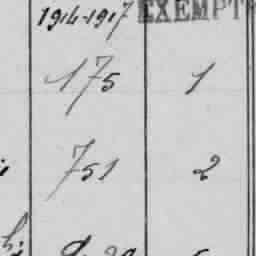 1914-1917 EXEMPT
175 1
751 2